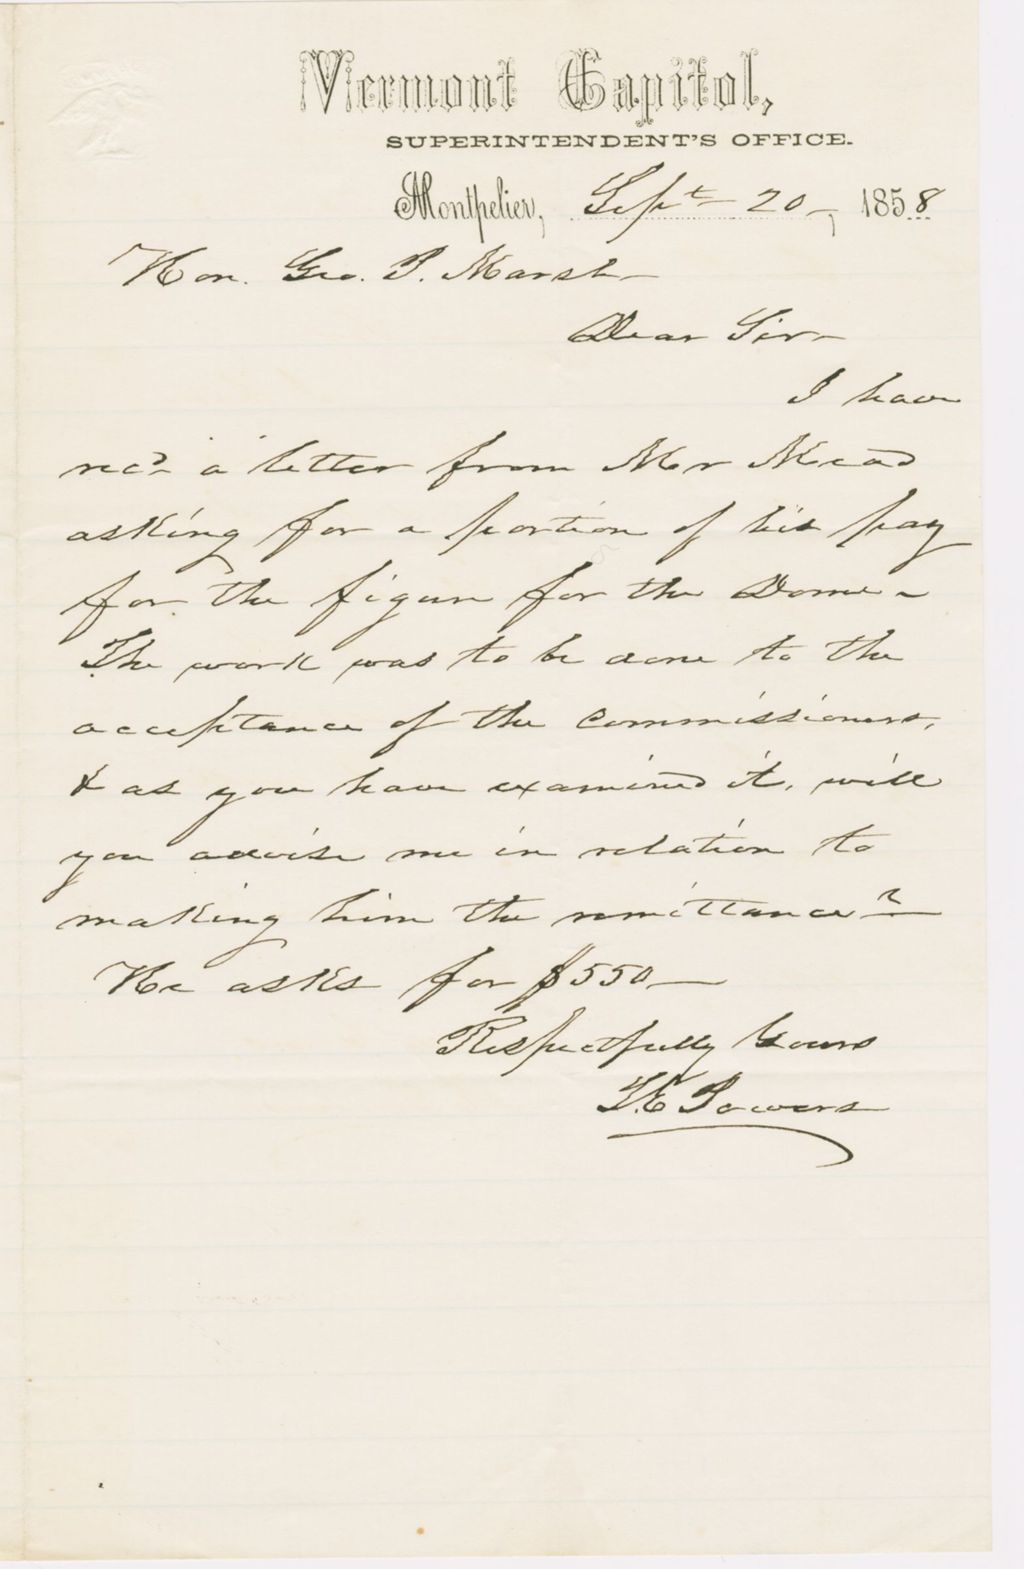 Vermont Capitol,
SUPERINTENDENT'S OFFICE.
Montpelier, Sept 20, 1858
Hon. Geo. P. Marsh
Dear Sir
I have
recd a letter from Mr Mead
asking for a portion of his pay
for the figure for the Dome
The work was to be done to the
acceptance of the Commissioners,
& as you have examined it, will
you advise me in relation to
making him the remittance?
He asks for $550
Respectfully Yours
T.E Powers